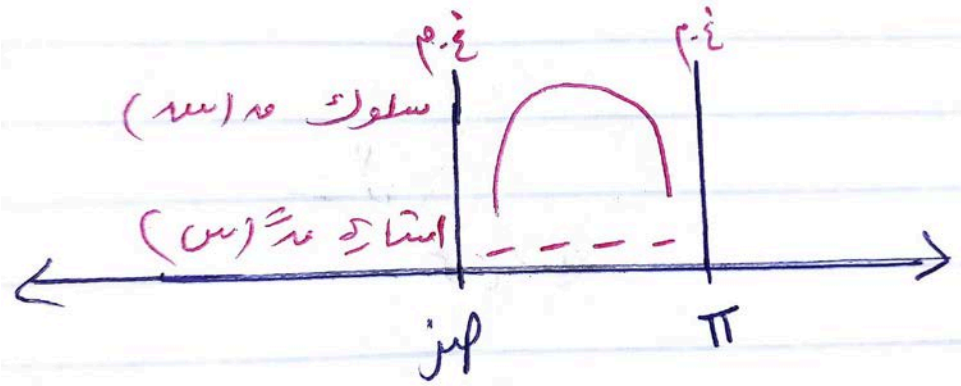 غ.م غ.م
سلوك ق(س)
اشارة قً(س)
صفر π